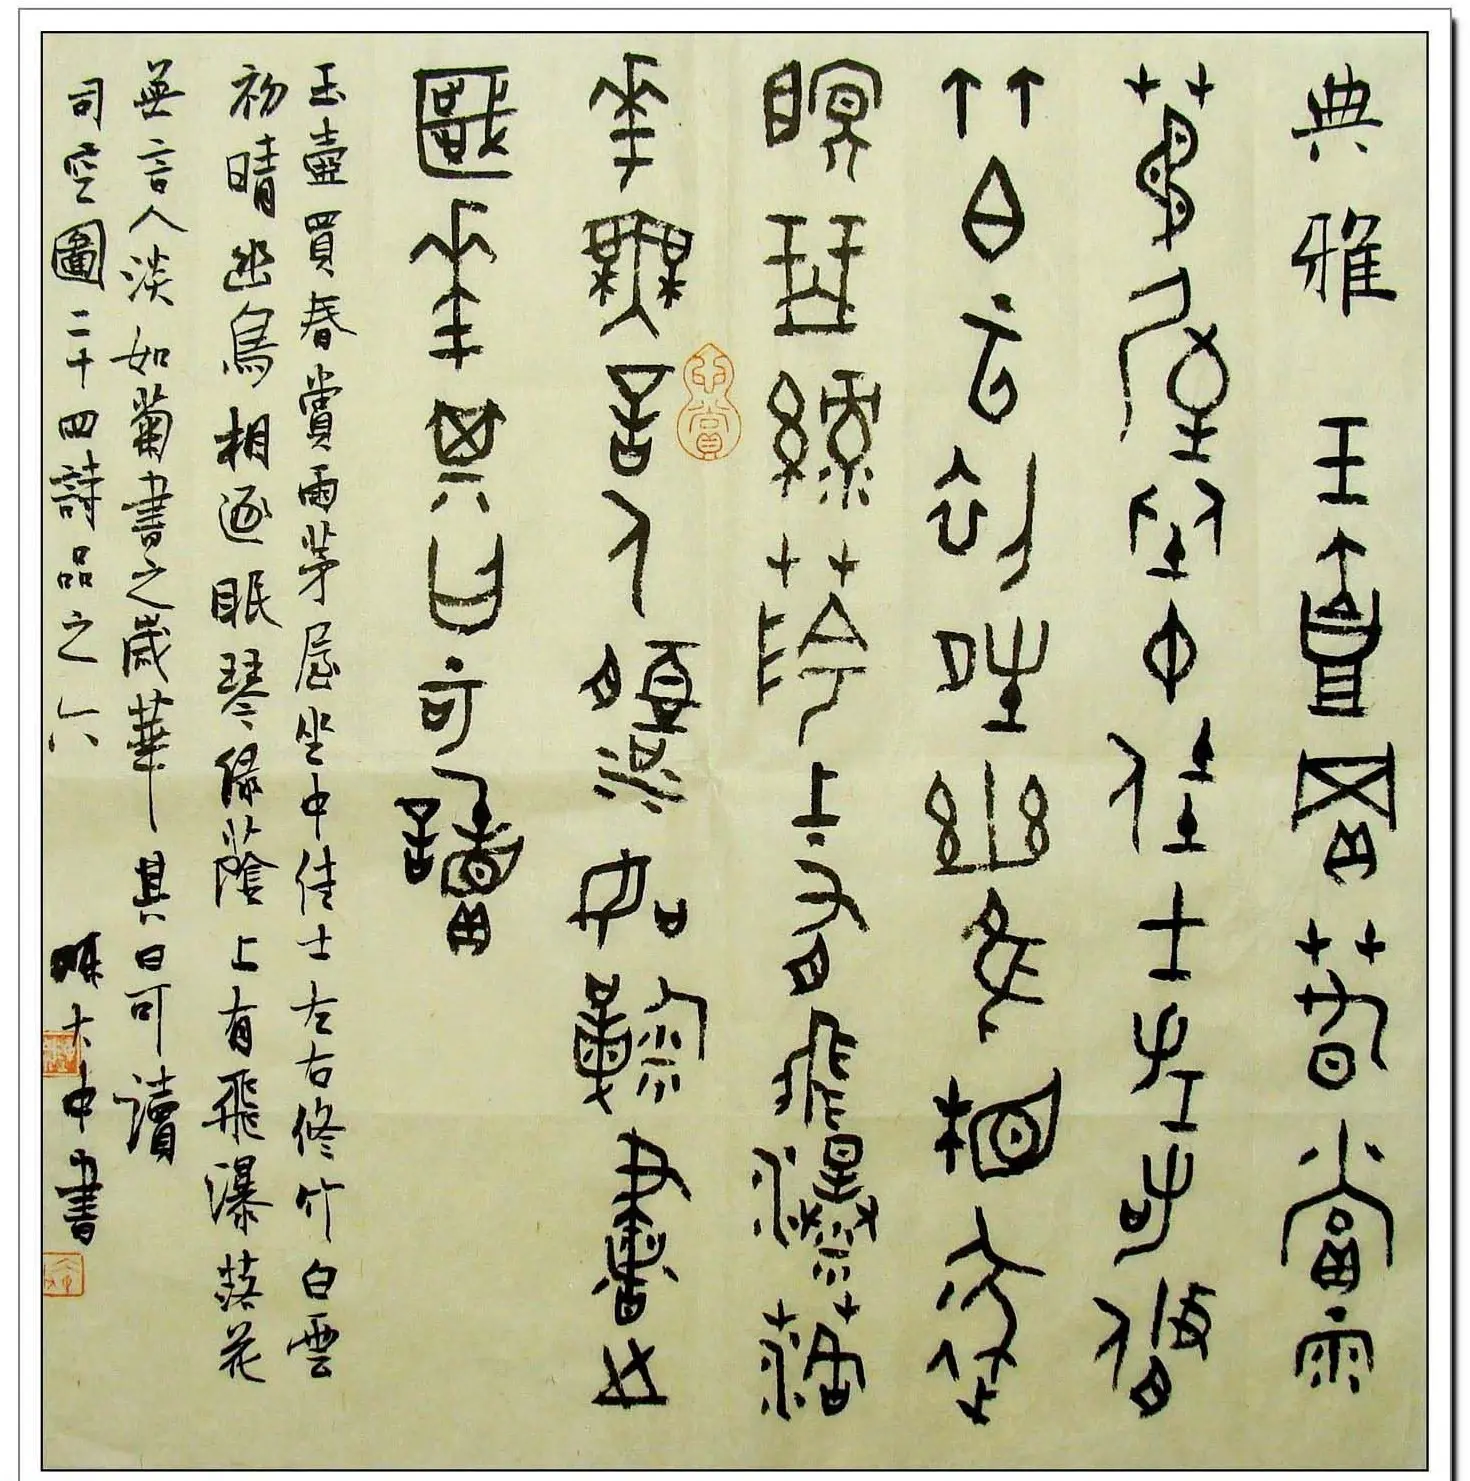 典雅 玉壺買春賞雨
茅屋坐中佳士左右脩
竹白云初晴幽鳥相逐
眠琴綠蔭上有飛瀑落
華無言人淡如菊書之
歲華其曰可讀
玉壺買春賞雨茅屋坐中佳士左右修竹白雲
初晴幽鳥相逐眠琴綠蔭上有飛瀑落花
無言人淡如菊書之歲華其曰可讀
司空圖二十四詩品之六 陳大中書